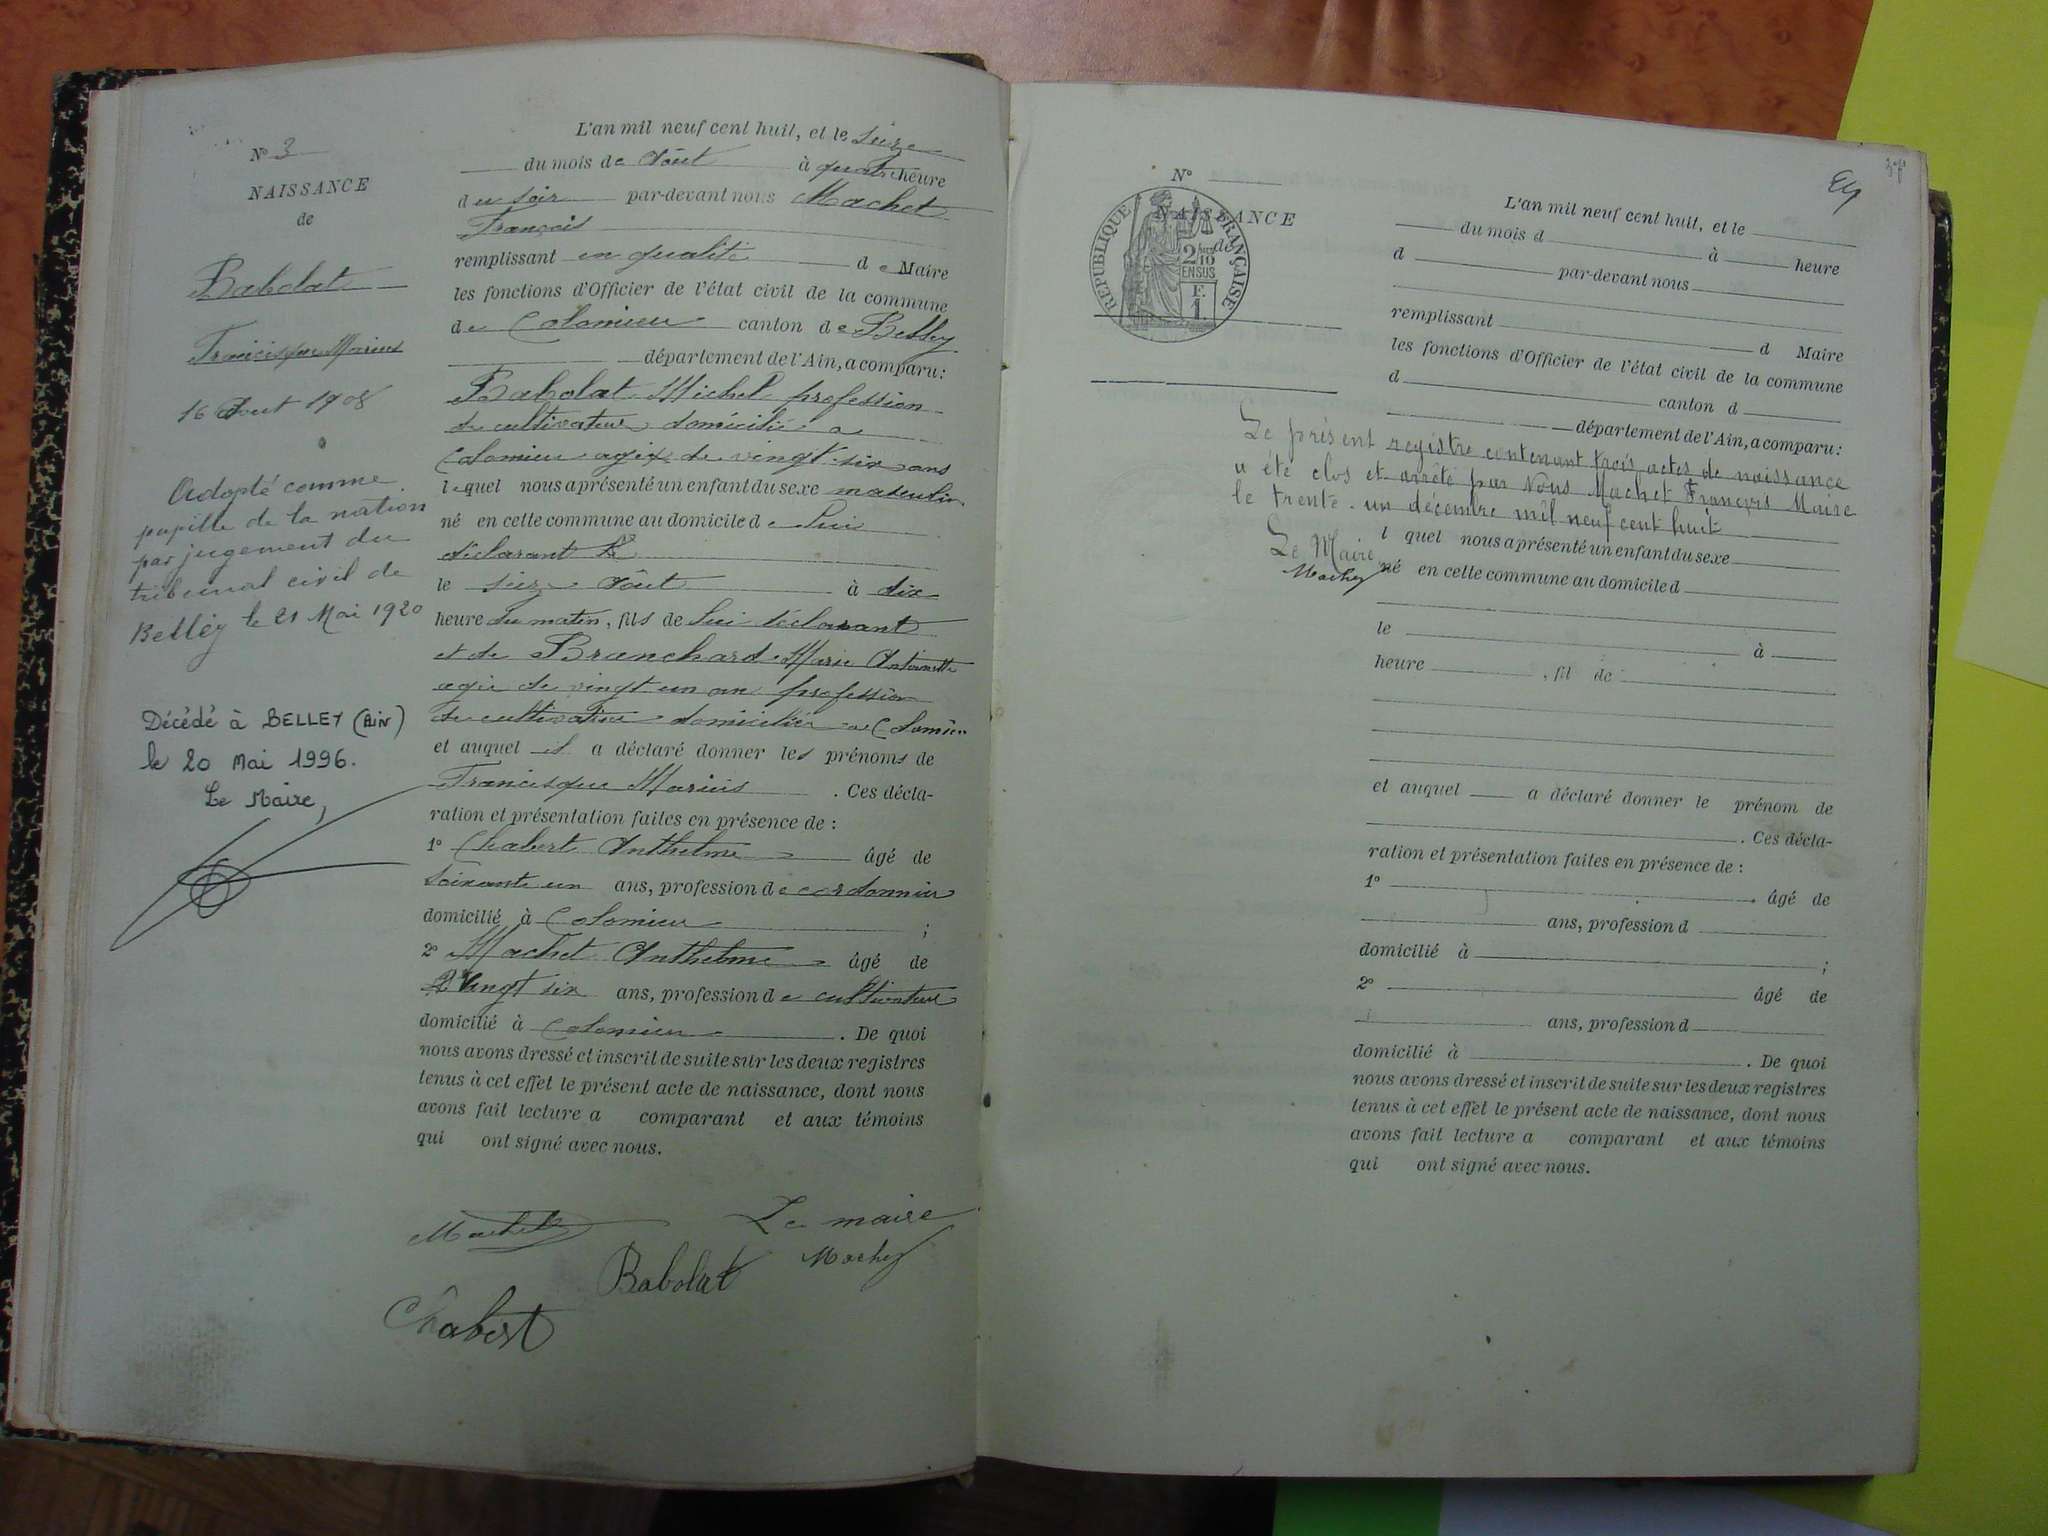 N° 3
NAISSANCE
de
Babolat
Francisque Marius
16 Aout 1908
Adopté comme
pupille de la nation
par jugement du
tribunal civil de
Belley le 21 Mai 1920
Décédé à BELLEY (Ain)
le 20 Mai 1996.
Le Maire,
L'an mil neuf cent huit, et le seize
du mois de Aôut à quatre heure
du soir par-devant nous Machet
François
remplissant en qualité de Maire
les fonctions d'Officier de l'état civil de la commune
de Colomieu canton de Belley
département de l'Ain, a comparu:
Babolat Michel profession
de cultivateur domicilié a
Colomieu agé de vingt-six ans
lequel nous a présenté un enfant du sexe masculin
né en cette commune au domicile de lui
déclarant
le seize Aôut à dix
heure du matin, fils de lui déclarant
et de Branchard Marie Antoinette
agée de vingt un an profession
de cultivatrice domiciliée a Colomieu
et auquel il a déclaré donner les prénoms de
Francisque Marius. Ces décla-
ration et présentation faites en présence de :
1° Chabert Anthelme âgé de
soixante un ans, profession de cordonnier
domicilié à Colomieu ;
2° Machet Anthelme âgé de
Vingt six ans, profession de cultivateur
domicilié à Colomieu. De quoi
nous avons dressé et inscrit de suite sur les deux registres
tenus à cet effet le présent acte de naissance, dont nous
avons fait lecture a comparant et aux témoins
qui ont signé avec nous.
Machet Le maire
Babolat Machet
Chabert
37
N°
NAISSANCE
de
RÉPUBLIQUE FRANÇAISE
2/10
EN SUS
F.
1.
L'an mil neuf cent huit, et le
du mois d à heure
d par-devant nous
remplissant d Maire
les fonctions d'Officier de l'état civil de la commune
d canton d
département de l'Ain, a comparu:
Le présent registre contenant trois actes de naissance
a été clos et arrêté par Nous Machet François Maire
le trente-un décembre mil neuf cent huit
l quel nous a présenté un enfant du sexe
Le Maire
Machet
né en cette commune au domicile d
le à
heure , fil de
et auquel a déclaré donner le prénom de
. Ces décla-
ration et présentation faites en présence de :
1° âgé de
ans, profession d
domicilié à ;
2° âgé de
ans, profession d
domicilié à . De quoi
nous avons dressé et inscrit de suite sur les deux registres
tenus à cet effet le présent acte de naissance, dont nous
avons fait lecture a comparant et aux témoins
qui ont signé avec nous.